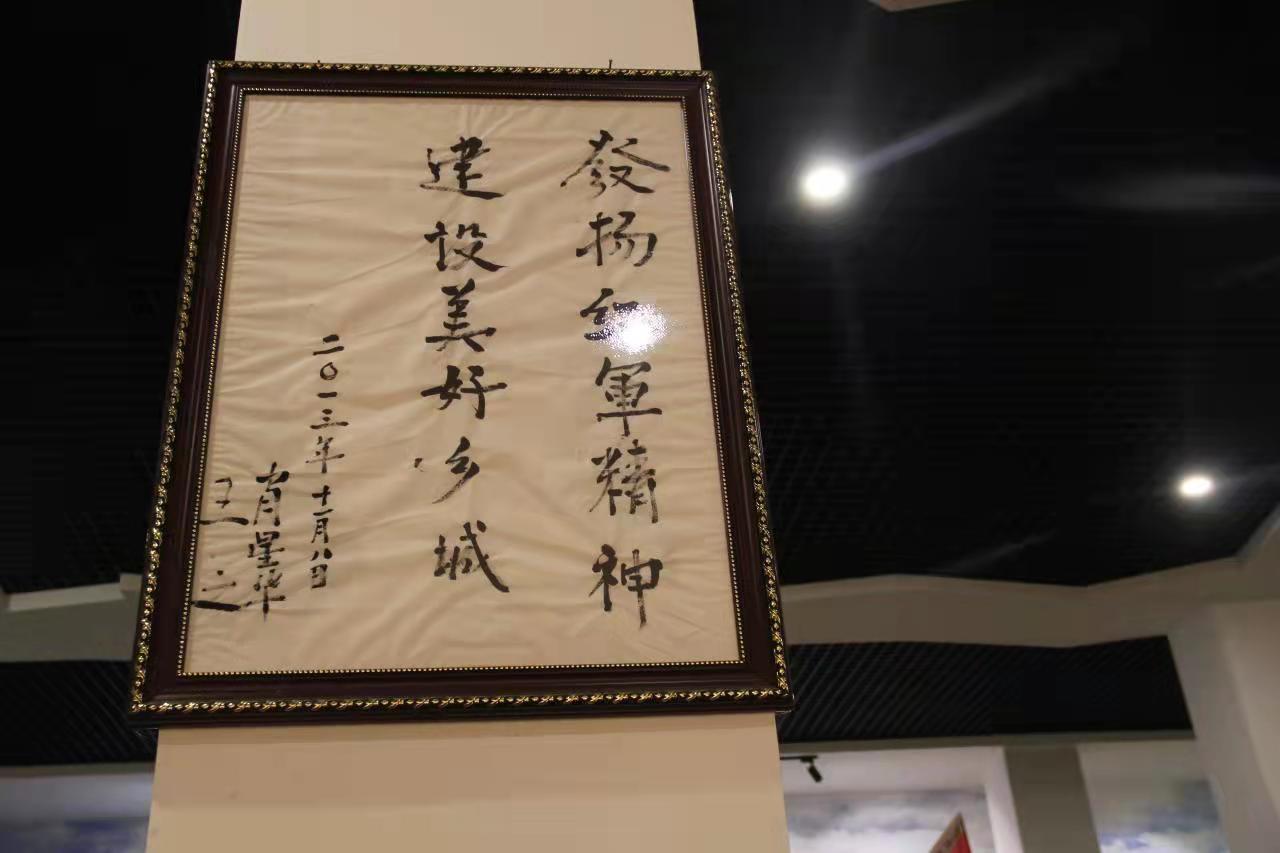 發扬红軍精神
建设美好乡城
二〇一三年十一月八日
肖星华